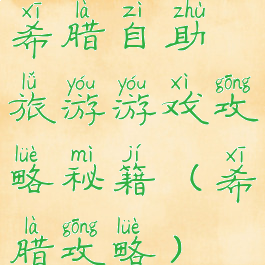 xī là zì zhù
希腊自助
lǚ yóu yóu xì gōng
旅游游戏攻
lüè mì jí xī
略秘籍（希
là gōng lüè
腊攻略）